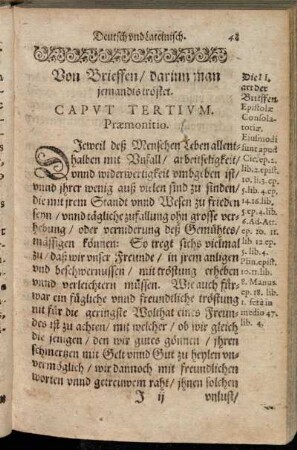 Deutsch vnd Lateinisch. 48
Von Brieffen / darinn man
jemandts tröstet.
CAPVT TERTIVM.
Præmonitio.
Dieweil deß Menschen Leben allent
halben mit Vnfall / arbeitseligkeit /
vnnd widerwertigkeit vmbgeben ist /
vnnd jhrer wenig auß vielen sind zu finden /
die mit jrem Standt vnnd Wesen zu frieden
seyn / vnnd tägliche zufallung ohn grosse ver-
hebung / oder verniderung deß Gemühtes /
mässigen können: So tregt sichs vielmal
zu / daß wir vnser Freunde / in jrem anligen
vnd beschwernussen / mit tröstung erheben
vnnd verleichtern müssen. Wie auch für-
war ein fügliche vnnd freundtliche tröstung
nit für die geringste Wolthat eines Freun-
des ist zu achten / mit welcher / ob wir gleich
die jenigen / den wir gutes gönnen / jhren
schmertzen mit Gelt vnnd Gut zu heylen vn-
vermöglich / wir dannoch mit freundlichen
worten vnnd getreuwem raht / jhnen solchen
J ij vnlust /
Die
art der
Brieffen.
Epistolæ
Consola-
toriæ.
Eiusmodi
sunt apud
Cic. ep. 2.
lib. 4. ep.
lib. 5. ep.
lib. 6. ep.
6. Ad Att.
ep. 10. 11.
lib. 12. ep.
5. lib. 4.
Plin. epist.
10. 11. lib.
8. Manut.
ep. 18. lib.
1. fere in
medio 47.
lib. 4.